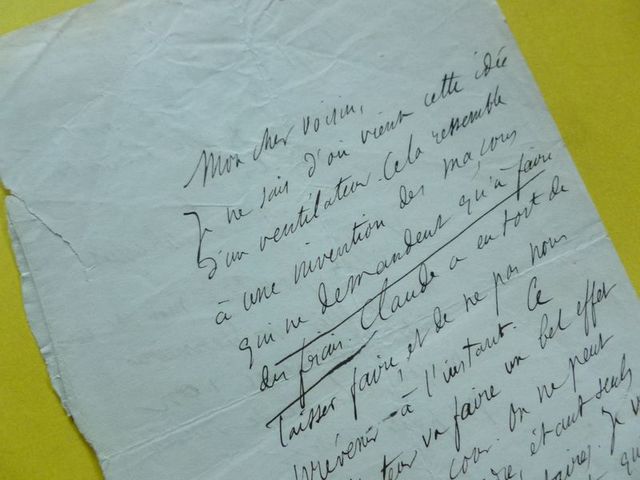 Mon cher voisin,
Je ne sais d'où vient cette idée
d'un ventilateur. Cela ressemble
à une invention des maçons
qui ne demandent qu'à faire
des frais. Claude a eu tort de
laisser faire, et de ne pas nous
prévenir à l'instant. Ce
teur va faire un bel effet
cour. On ne peut
étant seuls
Je